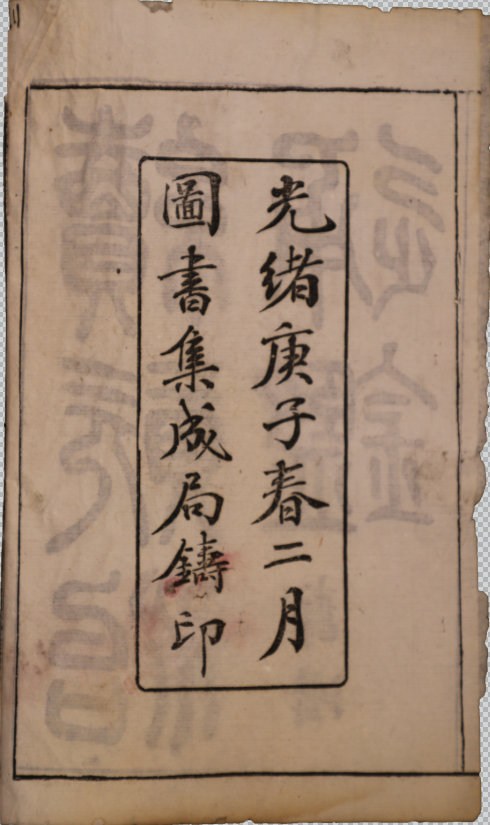 光緒庚子春二月
圖書集成局鑄印